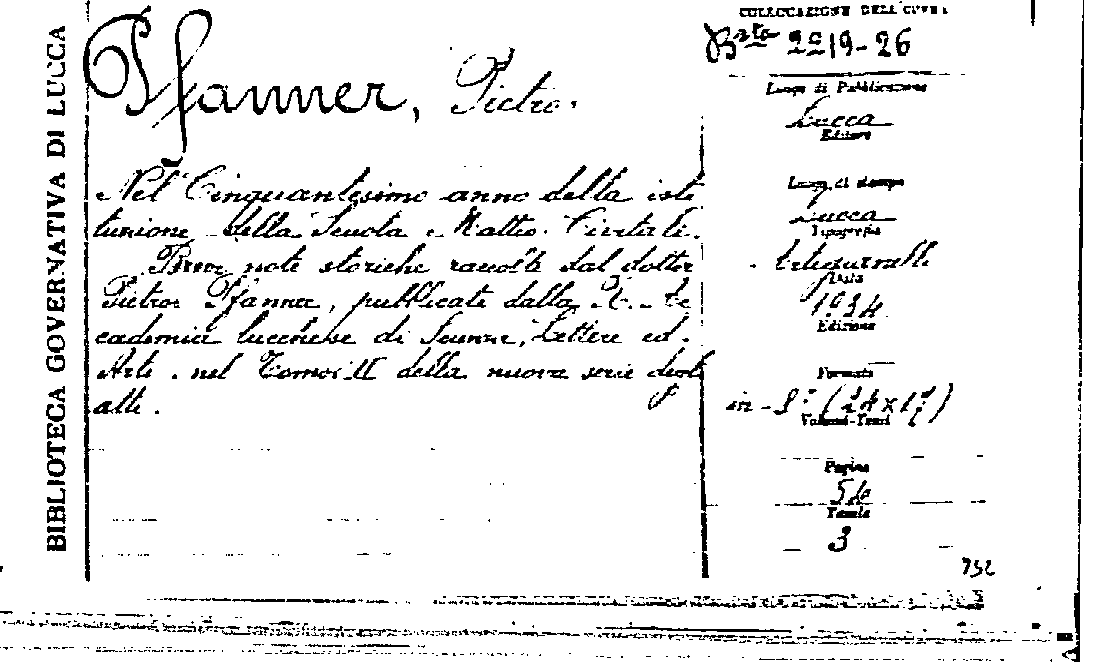 BIBLIOTECA GOVERNATIVA DI LUCCA
Pfanner, Pietro.
Nel Cinquantesimo anno della isti
tuzione della Scuola Matteo Civitali.
Brevi note storiche raccolte dal dottor
Pietro Pfanner, pubblicate dalla R. Ac
cademia lucchese di Scienze, Lettere ed
Arti nel Tomo II della nuova serie degli
atti.
COLLOCAZIONE DELL'OPERA
Bta 2019-26
Luogo di Pubblicazione
Lucca
Editore
Luogo di stampa
Lucca
Tipografia
Artigianelli
Data
1934
Edizione
Formato
in-8° (24x17)
Volumi-Tomi
Pagine
54
Tavole
3
732